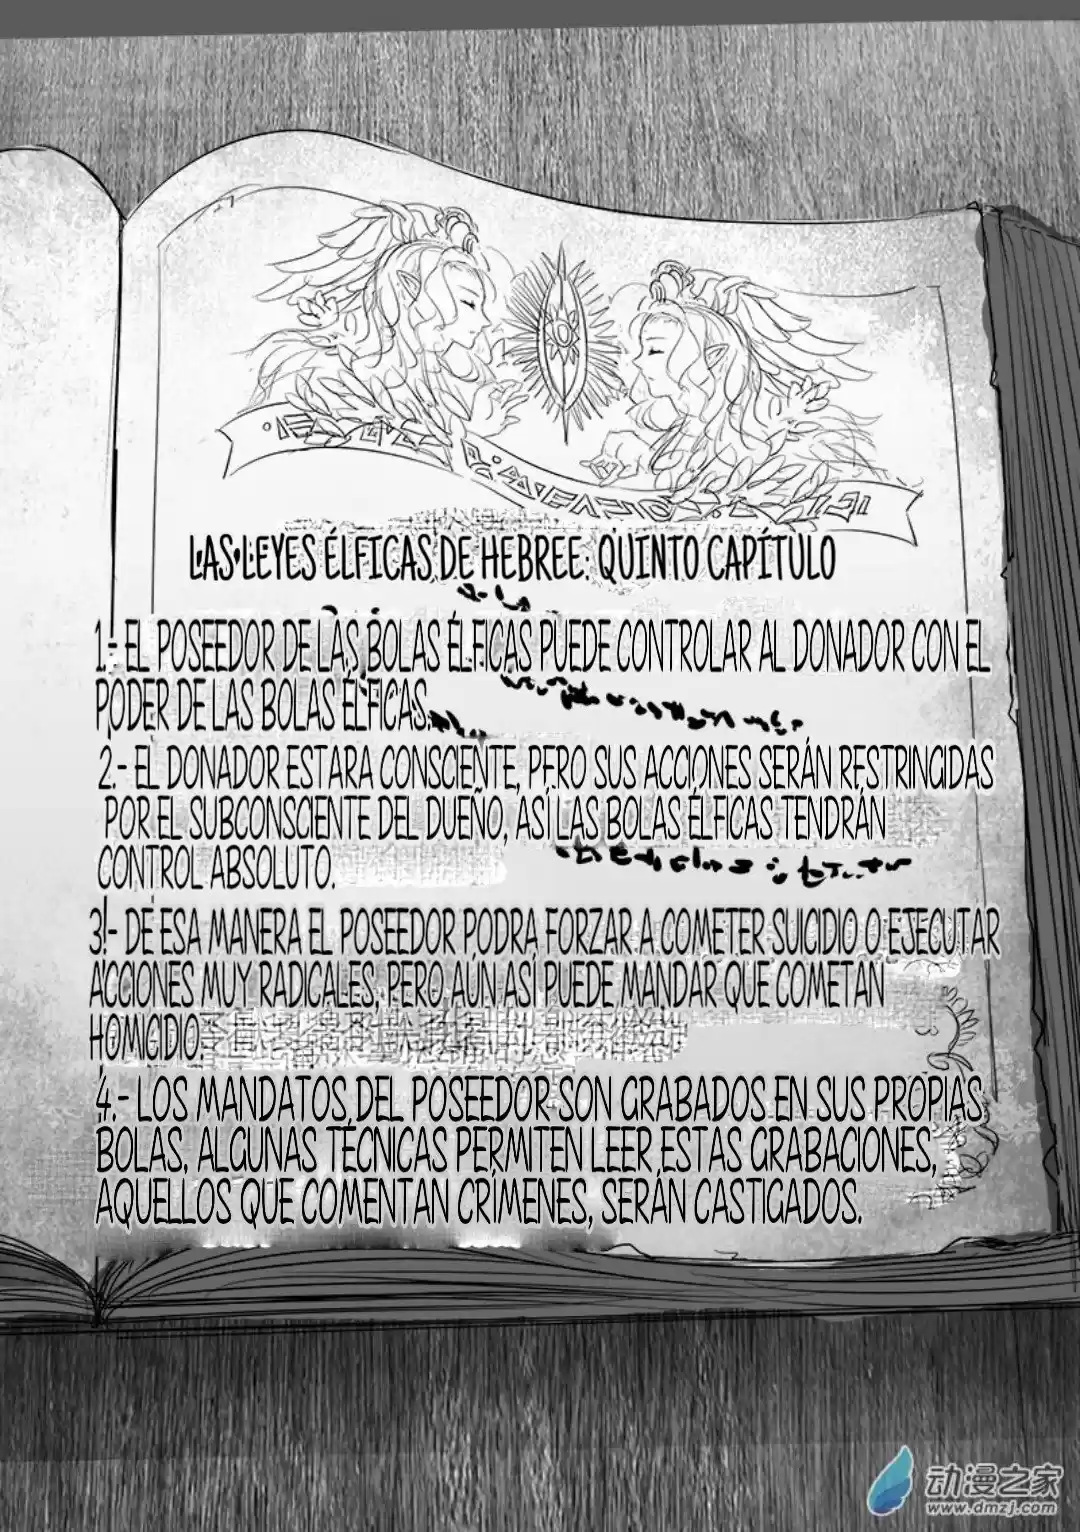 LAS LEYES ÉLFICAS DE HEBREE: QUINTO CAPÍTULO
1.- EL POSEEDOR DE LAS BOLAS ÉLFICAS PUEDE CONTROLAR AL DONADOR CON EL
PODER DE LAS BOLAS ÉLFICAS.
2.- EL DONADOR ESTARA CONSCIENTE, PERO SUS ACCIONES SERÁN RESTRINGIDAS
POR EL SUBCONSCIENTE DEL DUEÑO, ASÍ LAS BOLAS ÉLFICAS TENDRÁN
CONTROL ABSOLUTO.
3.- DE ESA MANERA EL POSEEDOR PODRA FORZAR A COMETER SUICIDIO O EJECUTAR
ACCIONES MUY RADICALES, PERO AÚN ASÍ PUEDE MANDAR QUE COMETAN
HOMICIDIO.
4.- LOS MANDATOS DEL POSEEDOR SON GRABADOS EN SUS PROPIAS
BOLAS. ALGUNAS TÉCNICAS PERMITEN LEER ESTAS GRABACIONES,
AQUELLOS QUE COMENTAN CRÍMENES, SERÁN CASTIGADOS.
动漫之家
www.dmzj.com